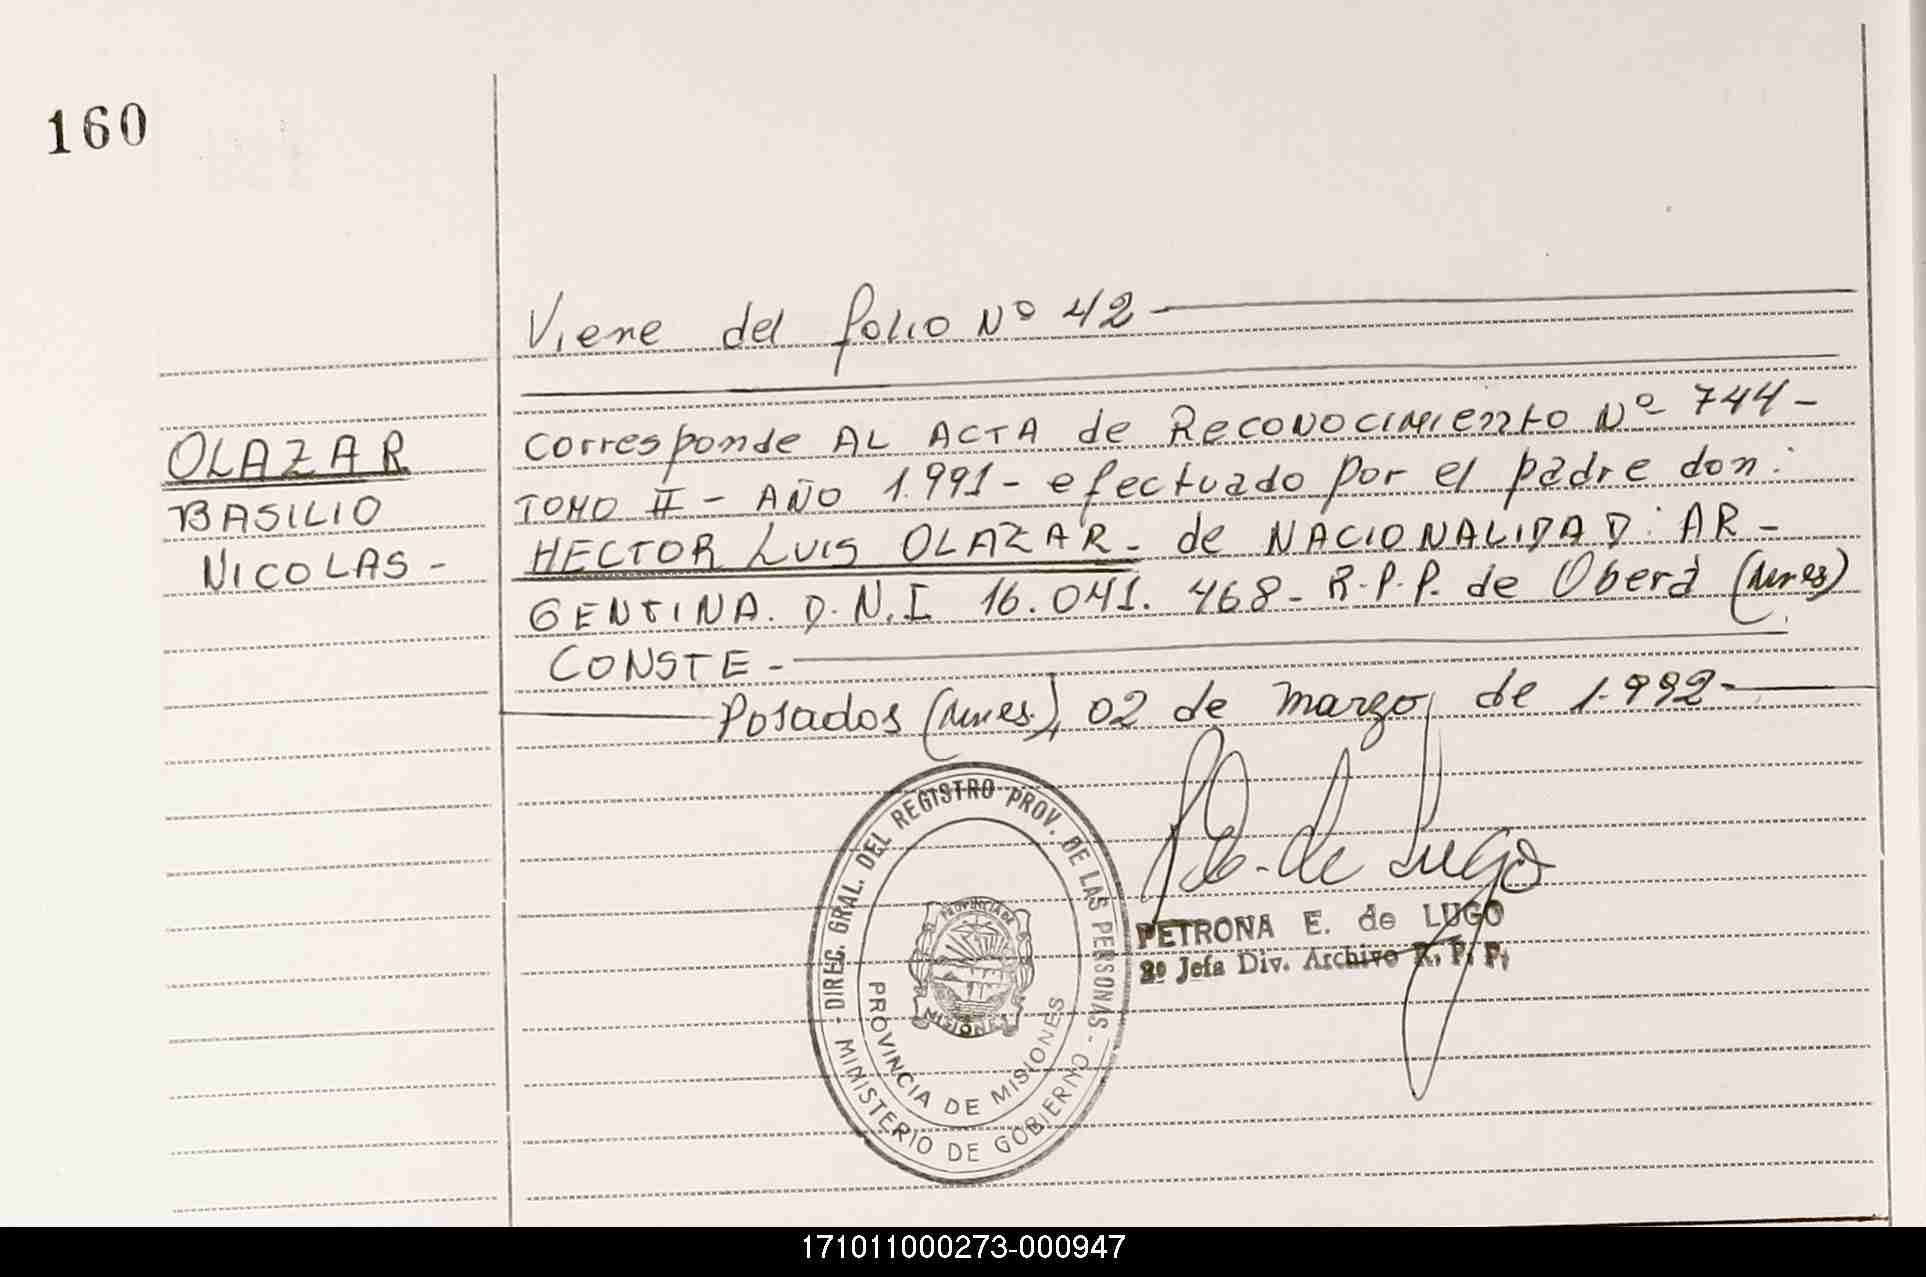 160
Viene del folio Nº 42
OLAZAR
BASILIO
NICOLAS -
corresponde AL ACTA de Reconocimiento Nº 744 -
TOMO II - AÑO 1.991 - efectuado por el padre don:
HECTOR LUIS OLAZAR - de NACIONALIDAD: AR -
GENTINA. D.N.I 16.041.468 - R.P.P. de Oberá (Mnes)
CONSTE -
Posadas (Mnes), 02 de marzo de 1.992 -
P. E. de Lugo
PETRONA E. de LUGO
2º Jefa Div. Archivo R. P. P.
DIREC. GRAL. DEL REGISTRO PROV. DE LAS PERSONAS -
MINISTERIO DE GOBIERNO -
PROVINCIA DE MISIONES
PROVINCIA DE
MISIONES
171011000273-000947